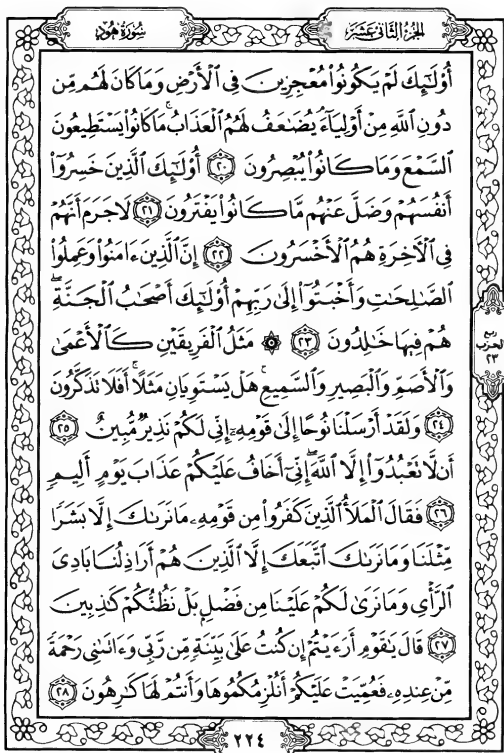 سُورَةُ هُودٍ
الجُزْءُ الثَّانِي عَشَرَ
أُوْلَـٰٓئِكَ لَمۡ يَكُونُواْ مُعۡجِزِينَ فِي ٱلۡأَرۡضِ وَمَا كَانَ لَهُم مِّن
دُونِ ٱللَّهِ مِنۡ أَوۡلِيَآءَۘ يُضَٰعَفُ لَهُمُ ٱلۡعَذَابُۚ مَا كَانُواْ يَسۡتَطِيعُونَ
ٱلسَّمۡعَ وَمَا كَانُواْ يُبۡصِرُونَ ٢٠ أُوْلَـٰٓئِكَ ٱلَّذِينَ خَسِرُوٓاْ
أَنفُسَهُمۡ وَضَلَّ عَنۡهُم مَّا كَانُواْ يَفۡتَرُونَ ٢١ لَا جَرَمَ أَنَّهُمۡ
فِي ٱلۡأٓخِرَةِ هُمُ ٱلۡأَخۡسَرُونَ ٢٢ إِنَّ ٱلَّذِينَ ءَامَنُواْ وَعَمِلُواْ
ٱلصَّٰلِحَٰتِ وَأَخۡبَتُوٓاْ إِلَىٰ رَبِّهِمۡ أُوْلَـٰٓئِكَ أَصۡحَٰبُ ٱلۡجَنَّةِۖ
هُمۡ فِيهَا خَٰلِدُونَ ٢٣ ۞ مَثَلُ ٱلۡفَرِيقَيۡنِ كَٱلۡأَعۡمَىٰ
وَٱلۡأَصَمِّ وَٱلۡبَصِيرِ وَٱلسَّمِيعِۚ هَلۡ يَسۡتَوِيَانِ مَثَلًاۚ أَفَلَا تَذَكَّرُونَ
٢٤ وَلَقَدۡ أَرۡسَلۡنَا نُوحًا إِلَىٰ قَوۡمِهِۦٓ إِنِّي لَكُمۡ نَذِيرٞ مُّبِينٌ ٢٥
أَن لَّا تَعۡبُدُوٓاْ إِلَّا ٱللَّهَۖ إِنِّيٓ أَخَافُ عَلَيۡكُمۡ عَذَابَ يَوۡمٍ أَلِيمٖ
٢٦ فَقَالَ ٱلۡمَلَأُ ٱلَّذِينَ كَفَرُواْ مِن قَوۡمِهِۦ مَا نَرَىٰكَ إِلَّا بَشَرٗا
مِّثۡلَنَا وَمَا نَرَىٰكَ ٱتَّبَعَكَ إِلَّا ٱلَّذِينَ هُمۡ أَرَاذِلُنَا بَادِيَ
ٱلرَّأۡيِ وَمَا نَرَىٰ لَكُمۡ عَلَيۡنَا مِن فَضۡلِۭ بَلۡ نَظُنُّكُمۡ كَٰذِبِينَ
٢٧ قَالَ يَٰقَوۡمِ أَرَءَيۡتُمۡ إِن كُنتُ عَلَىٰ بَيِّنَةٖ مِّن رَّبِّي وَءَاتَىٰنِي رَحۡمَةٗ
مِّنۡ عِندِهِۦ فَعُمِّيَتۡ عَلَيۡكُمۡ أَنُلۡزِمُكُمُوهَا وَأَنتُمۡ لَهَا كَٰرِهُونَ ٢٨
ربع
الحزب
٢٣
٢٢٤